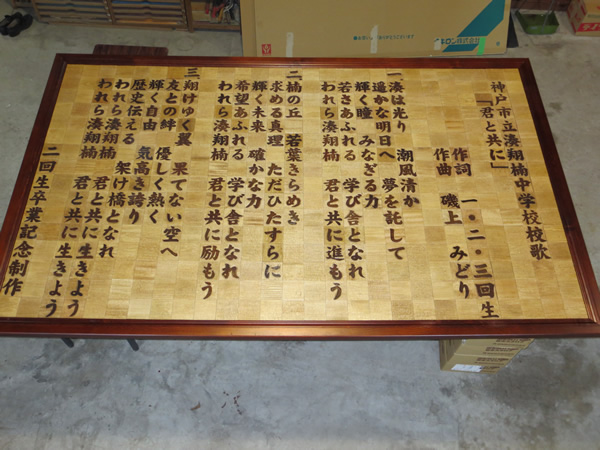 神戸市立湊翔楠中学校校歌
「君と共に」
作詞 一・二・三回生
作曲 磯上 みどり
一、湊は光り 潮風清か
遥かな明日へ 夢を託して
輝く瞳 みなぎる力
若さあふれる 学び舎となれ
われら湊翔楠 君と共に進もう
二、楠の丘 若葉きらめき
求める真理 ただひたすらに
輝く未来 確かな力
希望あふれる 学び舎となれ
われら湊翔楠 君と共に励もう
三、翔けゆく翼 果てない空へ
友との絆 優しく熱く
輝く自由 気高き誇り
歴史伝える 架け橋となれ
われら湊翔楠 君と共に生きよう
われら湊翔楠 君と共に生きよう
二回生卒業記念制作